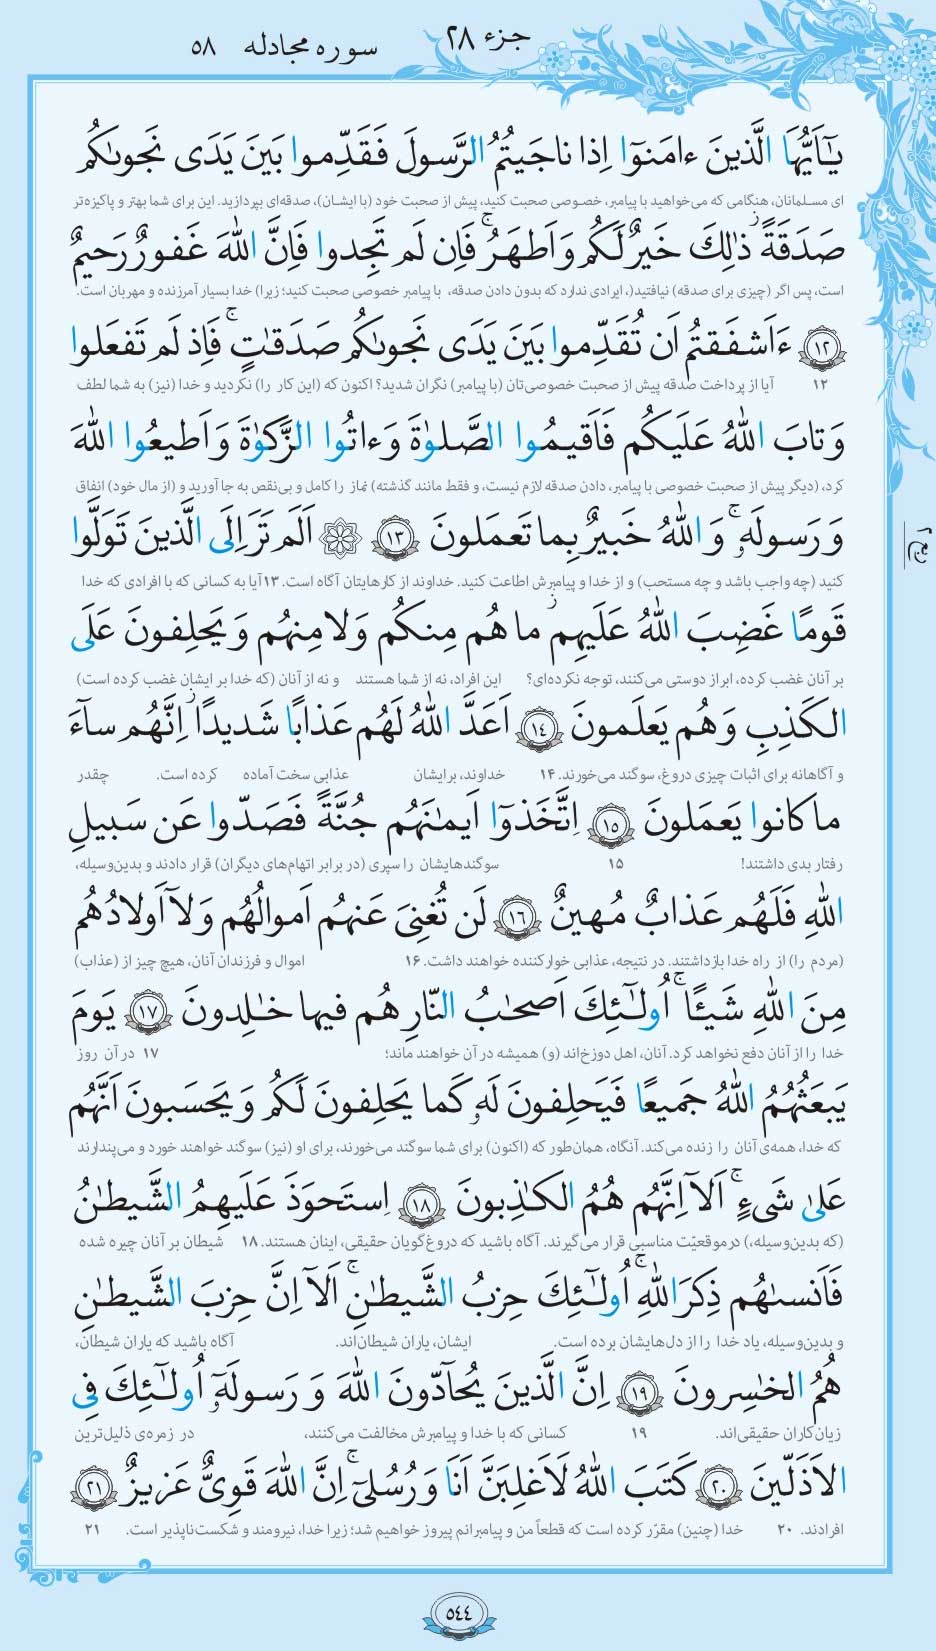 جزء ۲۸
سوره مجادله ۵۸
يٰٓاَيُّهَا الَّذينَ ءامَنوٓا اِذا ناجَيتُمُ الرَّسولَ فَقَدِّموا بَينَ يَدَى نَجوىٰكُم
ای مسلمانان، هنگامی که می‌خواهید با پیامبر، خصوصی صحبت کنید، پیش از صحبت خود (با ایشان)، صدقه‌ای بپردازید. این برای شما بهتر و پاکیزه‌تر
صَدَقَةً ۚ ذٰلِكَ خَيرٌ لَكُم وَ اَطهَرُ ۚ فَاِن لَم تَجِدوا فَاِنَّ اللهَ غَفورٌ رَحيمٌ
است، پس اگر (چیزی برای صدقه) نیافتید(، ایرادی ندارد که بدون دادن صدقه، با پیامبر خصوصی صحبت کنید؛ زیرا) خدا بسیار آمرزنده و مهربان است.
﴿١٢﴾ ءَاَشفَقتُم اَن تُقَدِّموا بَينَ يَدَى نَجوىٰكُم صَدَقٰتٍ ۚ فَاِذ لَم تَفعَلوا
۱۲ آیا از پرداخت صدقه پیش از صحبت خصوصی‌تان (با پیامبر) نگران شدید؟ اکنون که (این کار را) نکردید و خدا (نیز) به شما لطف
وَ تابَ اللهُ عَلَيكُم فَاَقيمُوا الصَّلوٰةَ وَ ءاتُوا الزَّكوٰةَ وَ اَطيعُوا اللهَ
کرد، (دیگر پیش از صحبت خصوصی با پیامبر، دادن صدقه لازم نیست، و فقط مانند گذشته) نماز را کامل و بی‌نقص به جا آورید و (از مال خود) انفاق
وَ رَسولَهٗ ۚ وَ اللهُ خَبيرٌ بِما تَعمَلونَ ﴿١٣﴾ ۞ اَلَم تَرَ اِلَى الَّذينَ تَوَلَّوا
کنید (چه واجب باشد و چه مستحب) و از خدا و پیامبرش اطاعت کنید. خداوند از کارهایتان آگاه است. ۱۳ آیا به کسانی که با افرادی که خدا
قَومًا غَضِبَ اللهُ عَلَيهِم ما هُم مِنكُم وَ لا مِنهُم وَ يَحلِفونَ عَلَى
بر آنان غضب کرده، ابراز دوستی می‌کنند، توجه نکرده‌ای؟ این افراد، نه از شما هستند و نه از آنان (که خدا بر ایشان غضب کرده است)
الكَذِبِ وَ هُم يَعلَمونَ ﴿١٤﴾ اَعَدَّ اللهُ لَهُم عَذابًا شَديدًا ۖ اِنَّهُم سآءَ
و آگاهانه برای اثبات چیزی دروغ، سوگند می‌خورند. ۱۴ خداوند، برایشان عذابی سخت آماده کرده است. چقدر
ما كانوا يَعمَلونَ ﴿١٥﴾ اِتَّخَذوٓا اَيمٰنَهُم جُنَّةً فَصَدّوا عَن سَبيلِ
رفتار بدی داشتند! ۱۵ سوگندهایشان را سپری (در برابر اتهام‌های دیگران) قرار دادند و بدین‌وسیله،
اللهِ فَلَهُم عَذابٌ مُهينٌ ﴿١٦﴾ لَن تُغنِىَ عَنهُم اَموالُهُم وَ لآ اَولادُهُم
(مردم را) از راه خدا بازداشتند. در نتیجه، عذابی خوارکننده خواهند داشت. ۱۶ اموال و فرزندان آنان، هیچ چیز از (عذاب)
مِنَ اللهِ شَيئًا ۚ اُولٰٓئِكَ اَصحٰبُ النّارِ هُم فيها خٰلِدونَ ﴿١٧﴾ يَومَ
خدا را از آنان دفع نخواهد کرد. آنان، اهل دوزخ‌اند (و) همیشه در آن خواهند ماند؛ ۱۷ در آن روز
يَبعَثُهُمُ اللهُ جَميعًا فَيَحلِفونَ لَهٗ كَما يَحلِفونَ لَكُم وَ يَحسَبونَ اَنَّهُم
که خدا، همه‌ی آنان را زنده می‌کند. آنگاه، همان‌طور که (اکنون) برای شما سوگند می‌خورند، برای او (نیز) سوگند خواهند خورد و می‌پندارند
عَلىٰ شَىءٍ ۚ اَلآ اِنَّهُم هُمُ الكٰذِبونَ ﴿١٨﴾ اِستَحوَذَ عَلَيهِمُ الشَّيطٰنُ
(که بدین‌وسیله،) در موقعیّت مناسبی قرار می‌گیرند. آگاه باشید که دروغ‌گویان حقیقی، اینان هستند. ۱۸ شیطان بر آنان چیره شده
فَاَنسىٰهُم ذِكرَ اللهِ ۚ اُولٰٓئِكَ حِزبُ الشَّيطٰنِ ۚ اَلآ اِنَّ حِزبَ الشَّيطٰنِ
و بدین‌وسیله، یاد خدا را از دل‌هایشان برده است. ایشان، یاران شیطان‌اند. آگاه باشید که یاران شیطان،
هُمُ الخٰسِرونَ ﴿١٩﴾ اِنَّ الَّذينَ يُحآدّونَ اللهَ وَ رَسولَهٗٓ اُولٰٓئِكَ فِى
زیان‌کاران حقیقی‌اند. ۱۹ کسانی که با خدا و پیامبرش مخالفت می‌کنند، در زمره‌ی ذلیل‌ترین
الاَذَلّينَ ﴿٢٠﴾ كَتَبَ اللهُ لَاَغلِبَنَّ اَنَا وَ رُسُلىٓ ۚ اِنَّ اللهَ قَوِىٌّ عَزيزٌ ﴿٢١﴾
افرادند. ۲۰ خدا (چنین) مقرّر کرده است که قطعاً من و پیامبرانم پیروز خواهیم شد؛ زیرا خدا، نیرومند و شکست‌ناپذیر است. ۲۱
۵۴۴